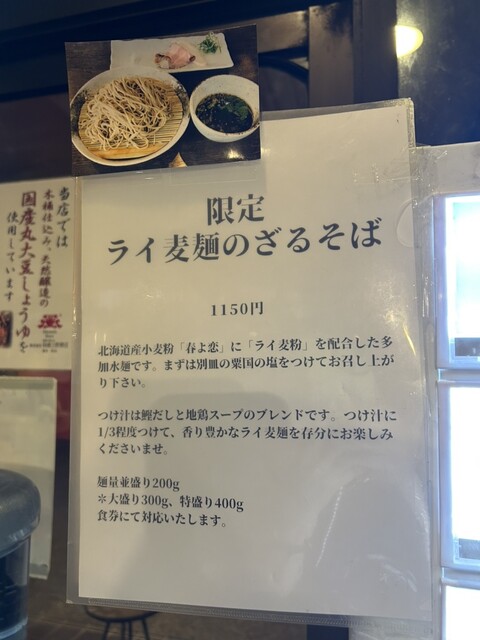 限定
ライ麦麺のざるそば
1150円
北海道産小麦粉「春よ恋」に「ライ麦粉」を配合した多
加水麺です。まずは別皿の粟国の塩をつけてお召し上が
り下さい。
つけ汁は鰹だしと地鶏スープのブレンドです。つけ汁に
1/3程度つけて、香り豊かなライ麦麺を存分にお楽しみ
くださいませ。
麺量並盛り200g
＊大盛り300g、特盛り400g
食券にて対応いたします。
当店では
木桶仕込み、天然醸造の
国産丸大豆しょうゆを
使用しています